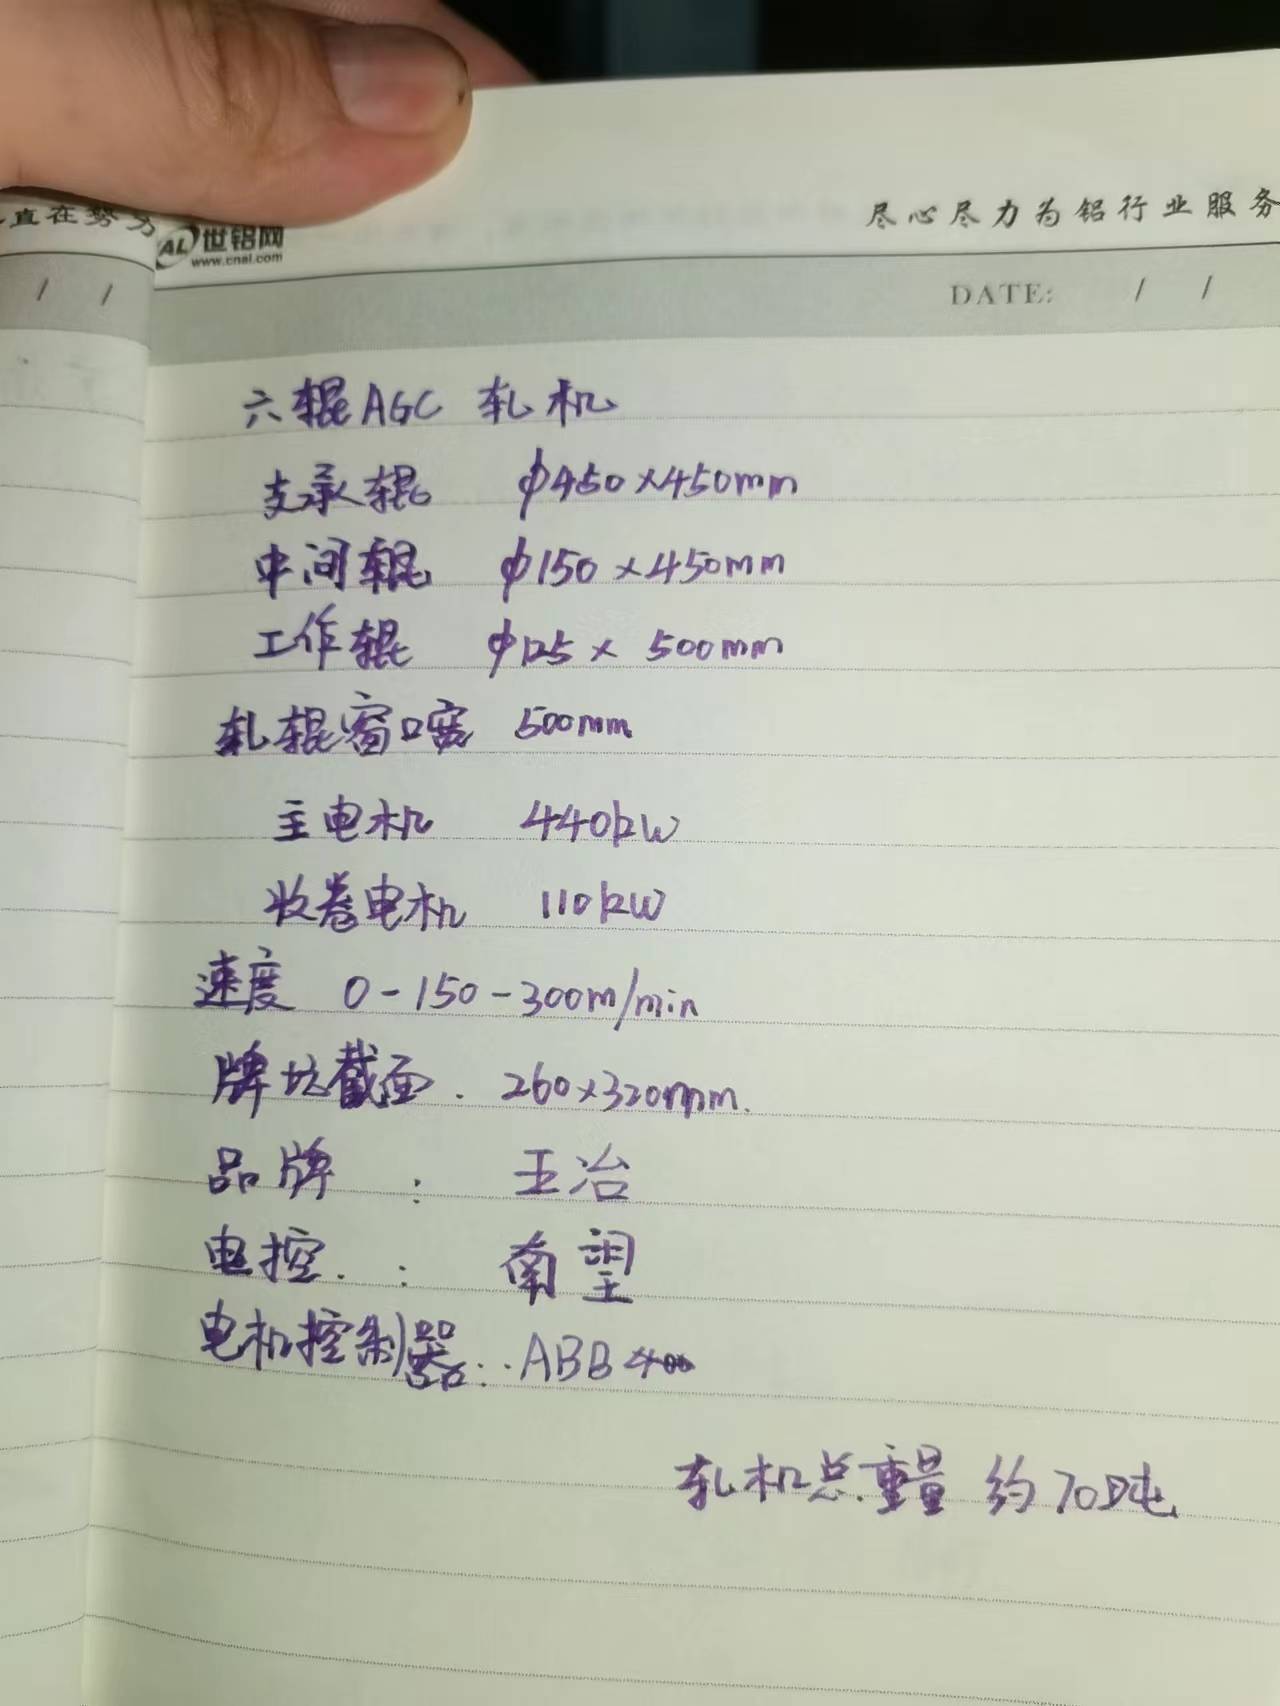 直在努力
AL 世铝网
www.cnal.com
尽心尽力为铝行业服务
/ /
DATE: / /
六辊AGC 轧机
支承辊 φ450×450mm
中间辊 φ150×450mm
工作辊 φ125× 500mm
轧辊窗口宽 500mm
主电机 440kW
收卷电机 110kW
速度 0-150-300m/min
牌坊截面. 260×320mm.
品牌 : 王冶
电控. : 南望
电机控制器:. ABB 400
轧机总重量 约70吨